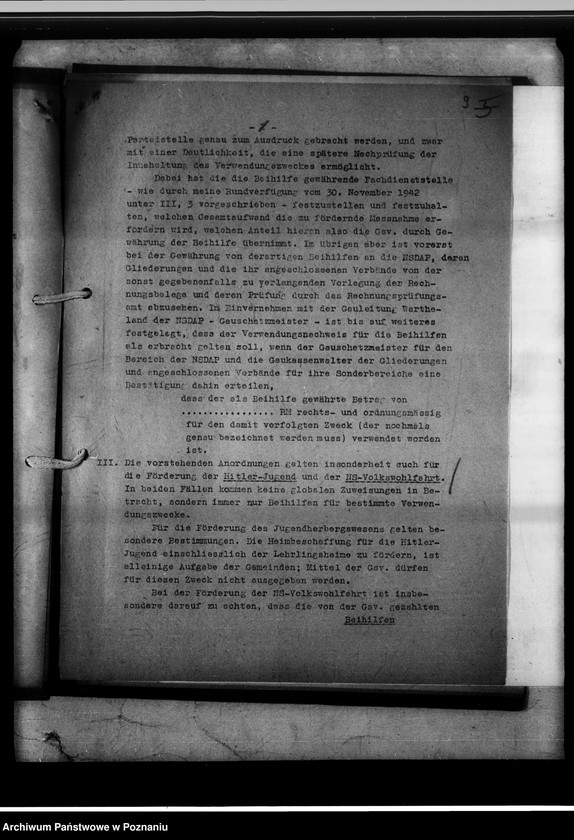 9 5
- 1 -
Parteistelle genau zum Ausdruck gebracht werden, und zwar
mit einer Deutlichkeit, die eine spätere Nachprüfung der
Innehaltung des Verwendungszweckes ermöglicht.
Dabei hat die die Beihilfe gewährende Fachdienststelle
- wie durch meine Rundverfügung vom 30. November 1942
unter III, 3 vorgeschrieben - festzustellen und festzuhal-
ten, welchen Gesamtaufwand die zu fördernde Massnahme er-
fordern wird, welchen Anteil hieran also die Gsv. durch Ge-
währung der Beihilfe übernimmt. Im übrigen aber ist vorerst
bei der Gewährung von derartigen Beihilfen an die NSDAP, deren
Gliederungen und die ihr angeschlossenen Verbände von der
sonst gegebenenfalls zu verlangenden Vorlegung der Rech-
nungsbelege und deren Prüfung durch das Rechnungsprüfungs-
amt abzusehen. Im Einvernehmen mit der Gauleitung Warthe-
land der NSDAP - Gauschatzmeister - ist bis auf weiteres
festgelegt, dass der Verwendungsnachweis für die Beihilfen
als erbracht gelten soll, wenn der Gauschatzmeister für den
Bereich der NSDAP und die Gaukassenwalter der Gliederungen
und angeschlossenen Verbände für ihre Sonderbereiche eine
Bestätigung dahin erteilen,
dass der als Beihilfe gewährte Betrag von
................ RM rechts- und ordnungsmässig
für den damit verfolgten Zweck (der nochmals
genau bezeichnet werden muss) verwendet worden
ist.
III. Die vorstehenden Anordnungen gelten insonderheit auch für
die Förderung der Hitler-Jugend und der NS-Volkswohlfahrt.
In beiden Fällen kommen keine globalen Zuweisungen in Be-
tracht, sondern immer nur Beihilfen für bestimmte Verwen-
dungszwecke.
Für die Förderung des Jugendherbergswesens gelten be-
sondere Bestimmungen. Die Heimbeschaffung für die Hitler-
Jugend einschliesslich der Lehrlingsheime zu fördern, ist
alleinige Aufgabe der Gemeinden; Mittel der Gsv. dürfen
für diesen Zweck nicht ausgegeben werden.
Bei der Förderung der NS-Volkswohlfahrt ist insbe-
sondere darauf zu achten, dass die von der Gsv. gezahlten
Beihilfen
Archiwum Państwowe w Poznaniu